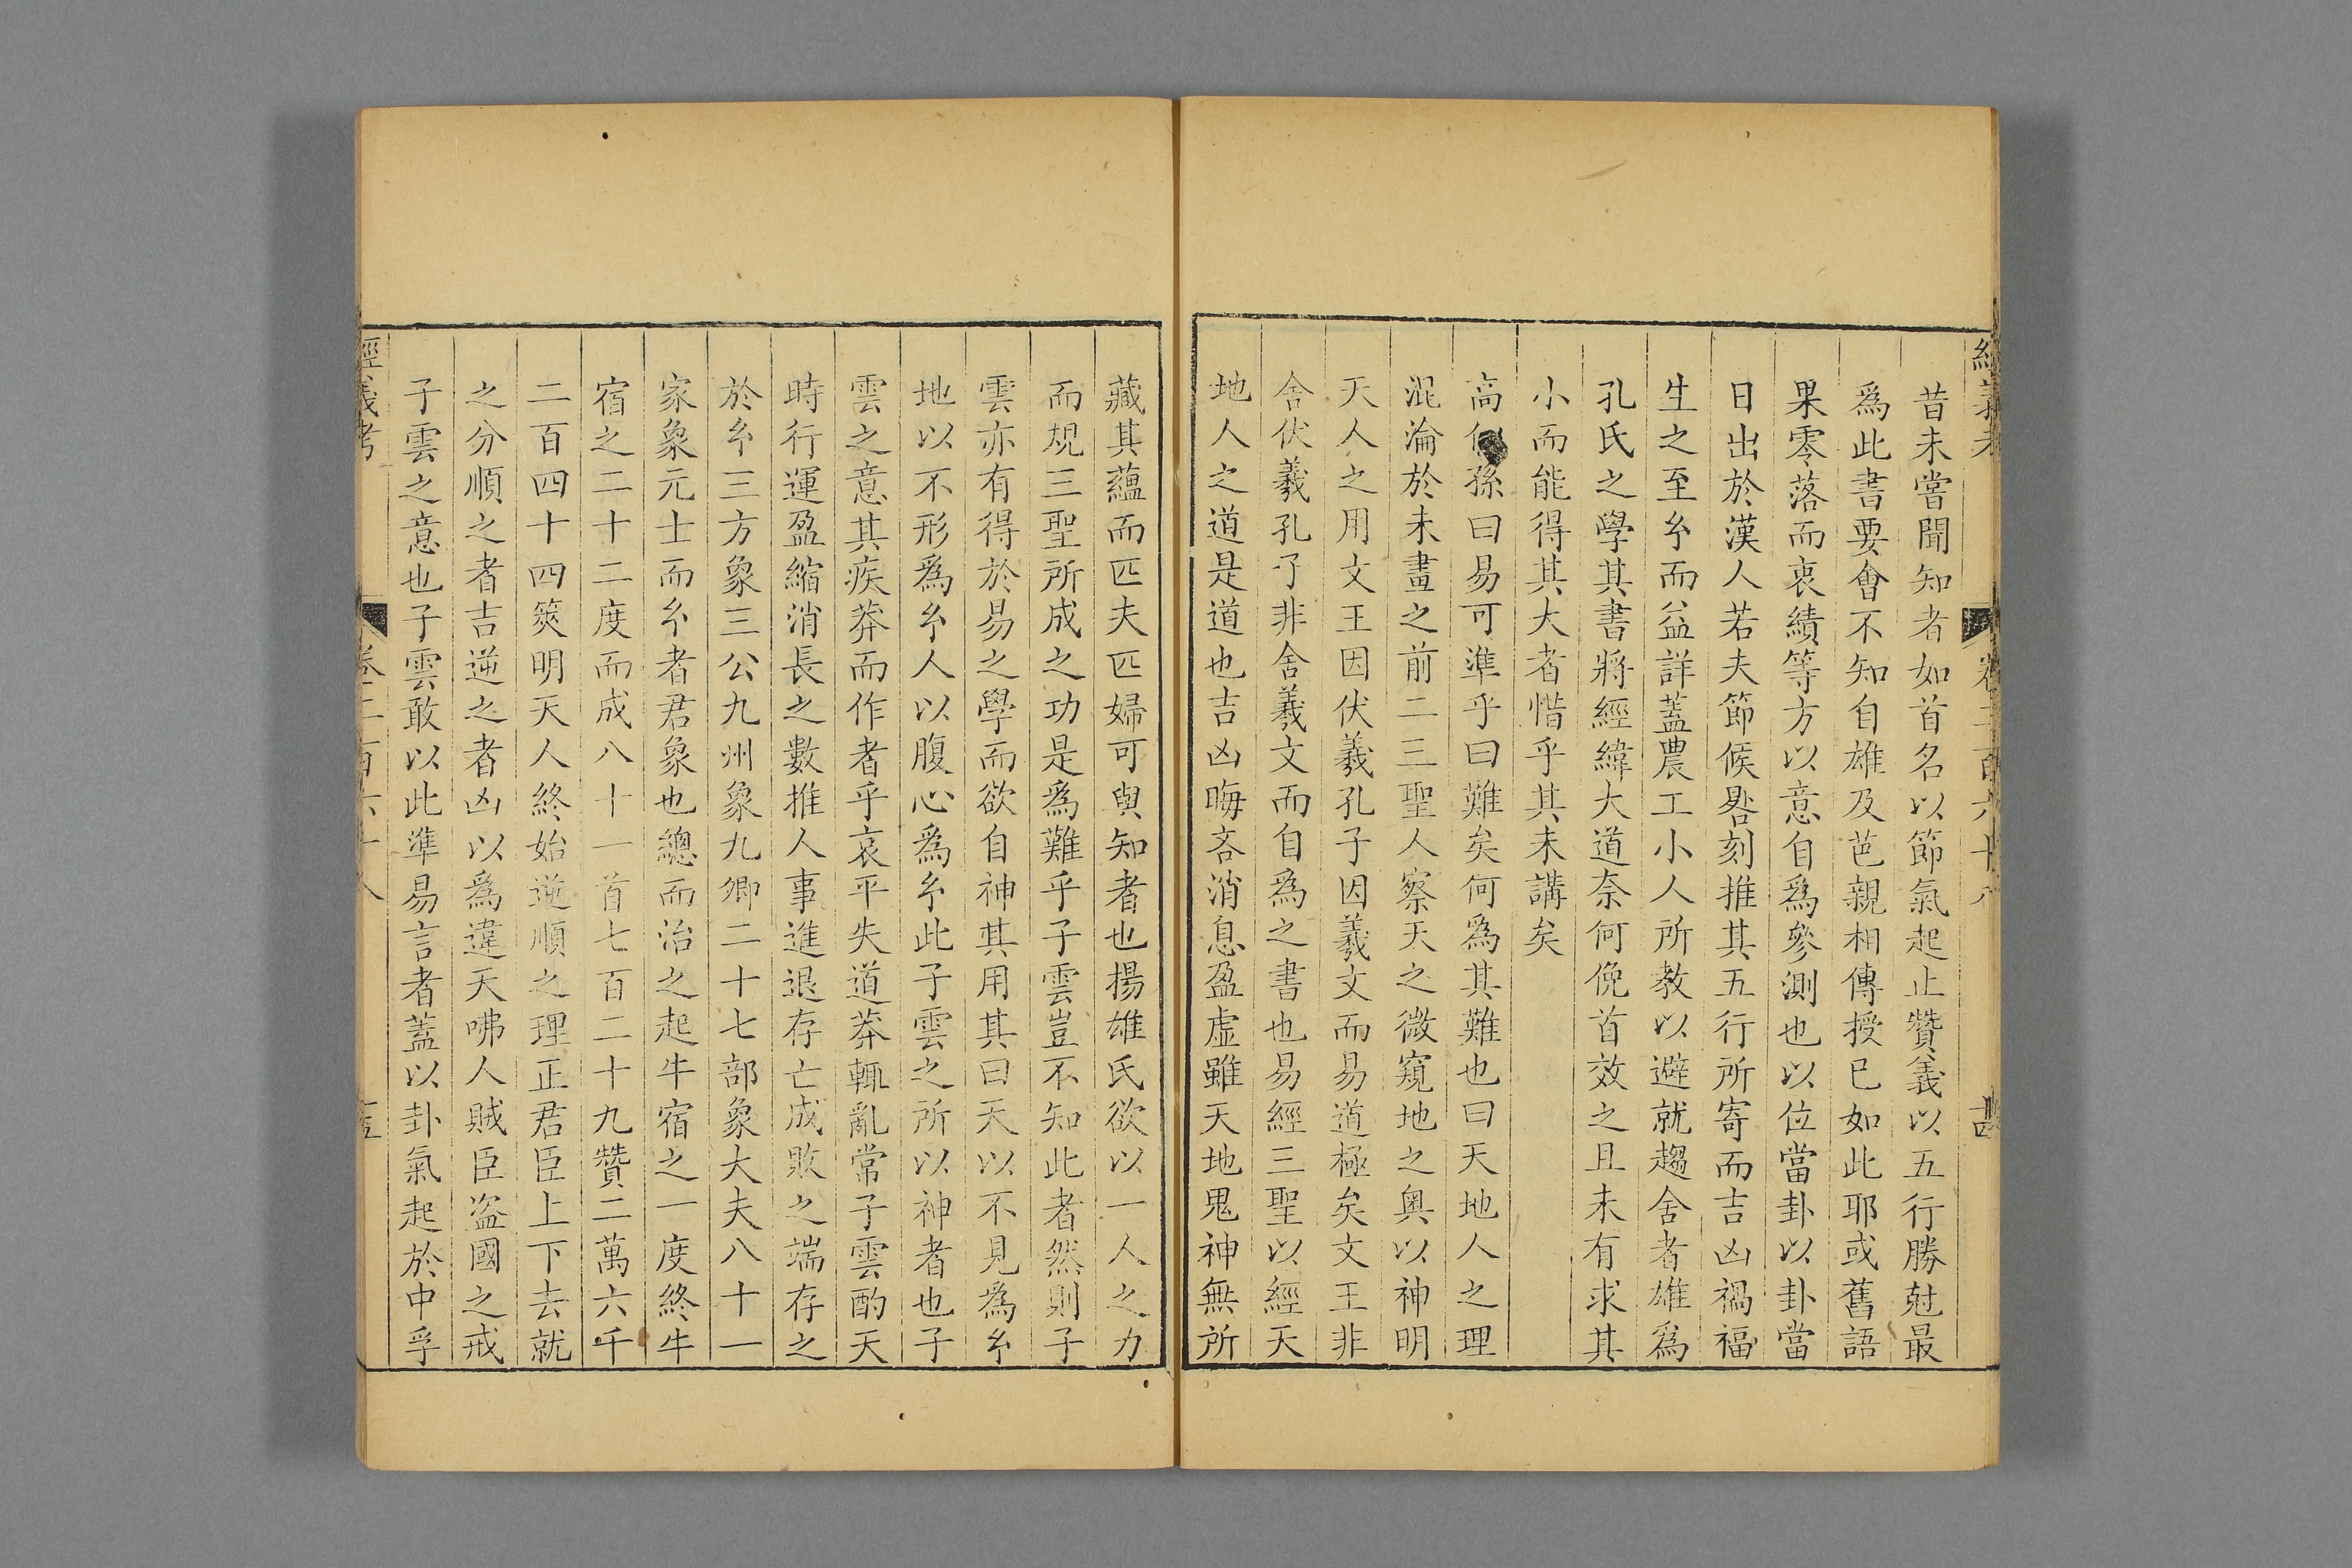 經義考
卷二百六十八
昔未嘗聞知者如首名以節氣起止贊義以五行勝尅最
爲此書要會不知自雄及芭親相傳授已如此耶或舊語
果零落而衷績等方以意自爲參測也以位當卦以卦當
日出於漢人若夫節候晷刻推其五行所寄而吉凶禍福
生之至𤣥而益詳蓋農工小人所教以避就趨舍者雄爲
孔氏之學其書將經緯大道奈何俛首效之且未有求其
小而能得其大者惜乎其未講矣
高 孫曰易可準乎曰難矣何爲其難也曰天地人之理
混淪於未畫之前二三聖人察天之微窺地之奧以神明
天人之用文王因伏羲孔子因羲文而易道極矣文王非
舍伏羲孔子非舍羲文而自爲之書也易經三聖以經天
地人之道是道也吉凶晦吝消息盈虛雖天地鬼神無所
藏其蘊而匹夫匹婦可與知者也揚雄氏欲以一人之力
而規三聖所成之功是爲難乎子雲豈不知此者然則子
雲亦有得於易之學而欲自神其用其曰天以不見爲𤣥
地以不形爲𤣥人以腹心爲𤣥此子雲之所以神者也子
雲之意其疾莽而作者乎哀平失道莽輒亂常子雲酌天
時行運盈縮消長之數推人事進退存亡成敗之端存之
於𤣥三方象三公九州象九卿二十七部象大夫八十一
家象元士而𤣥者君象也總而治之起牛宿之一度終牛
宿之二十二度而成八十一首七百二十九贊二萬六千
二百四十四筴明天人終始逆順之理正君臣上下去就
之分順之者吉逆之者凶以爲違天咈人賊臣盜國之戒
子雲之意也子雲敢以此準易言者蓋以卦氣起於中孚
經義考
卷二百六十八